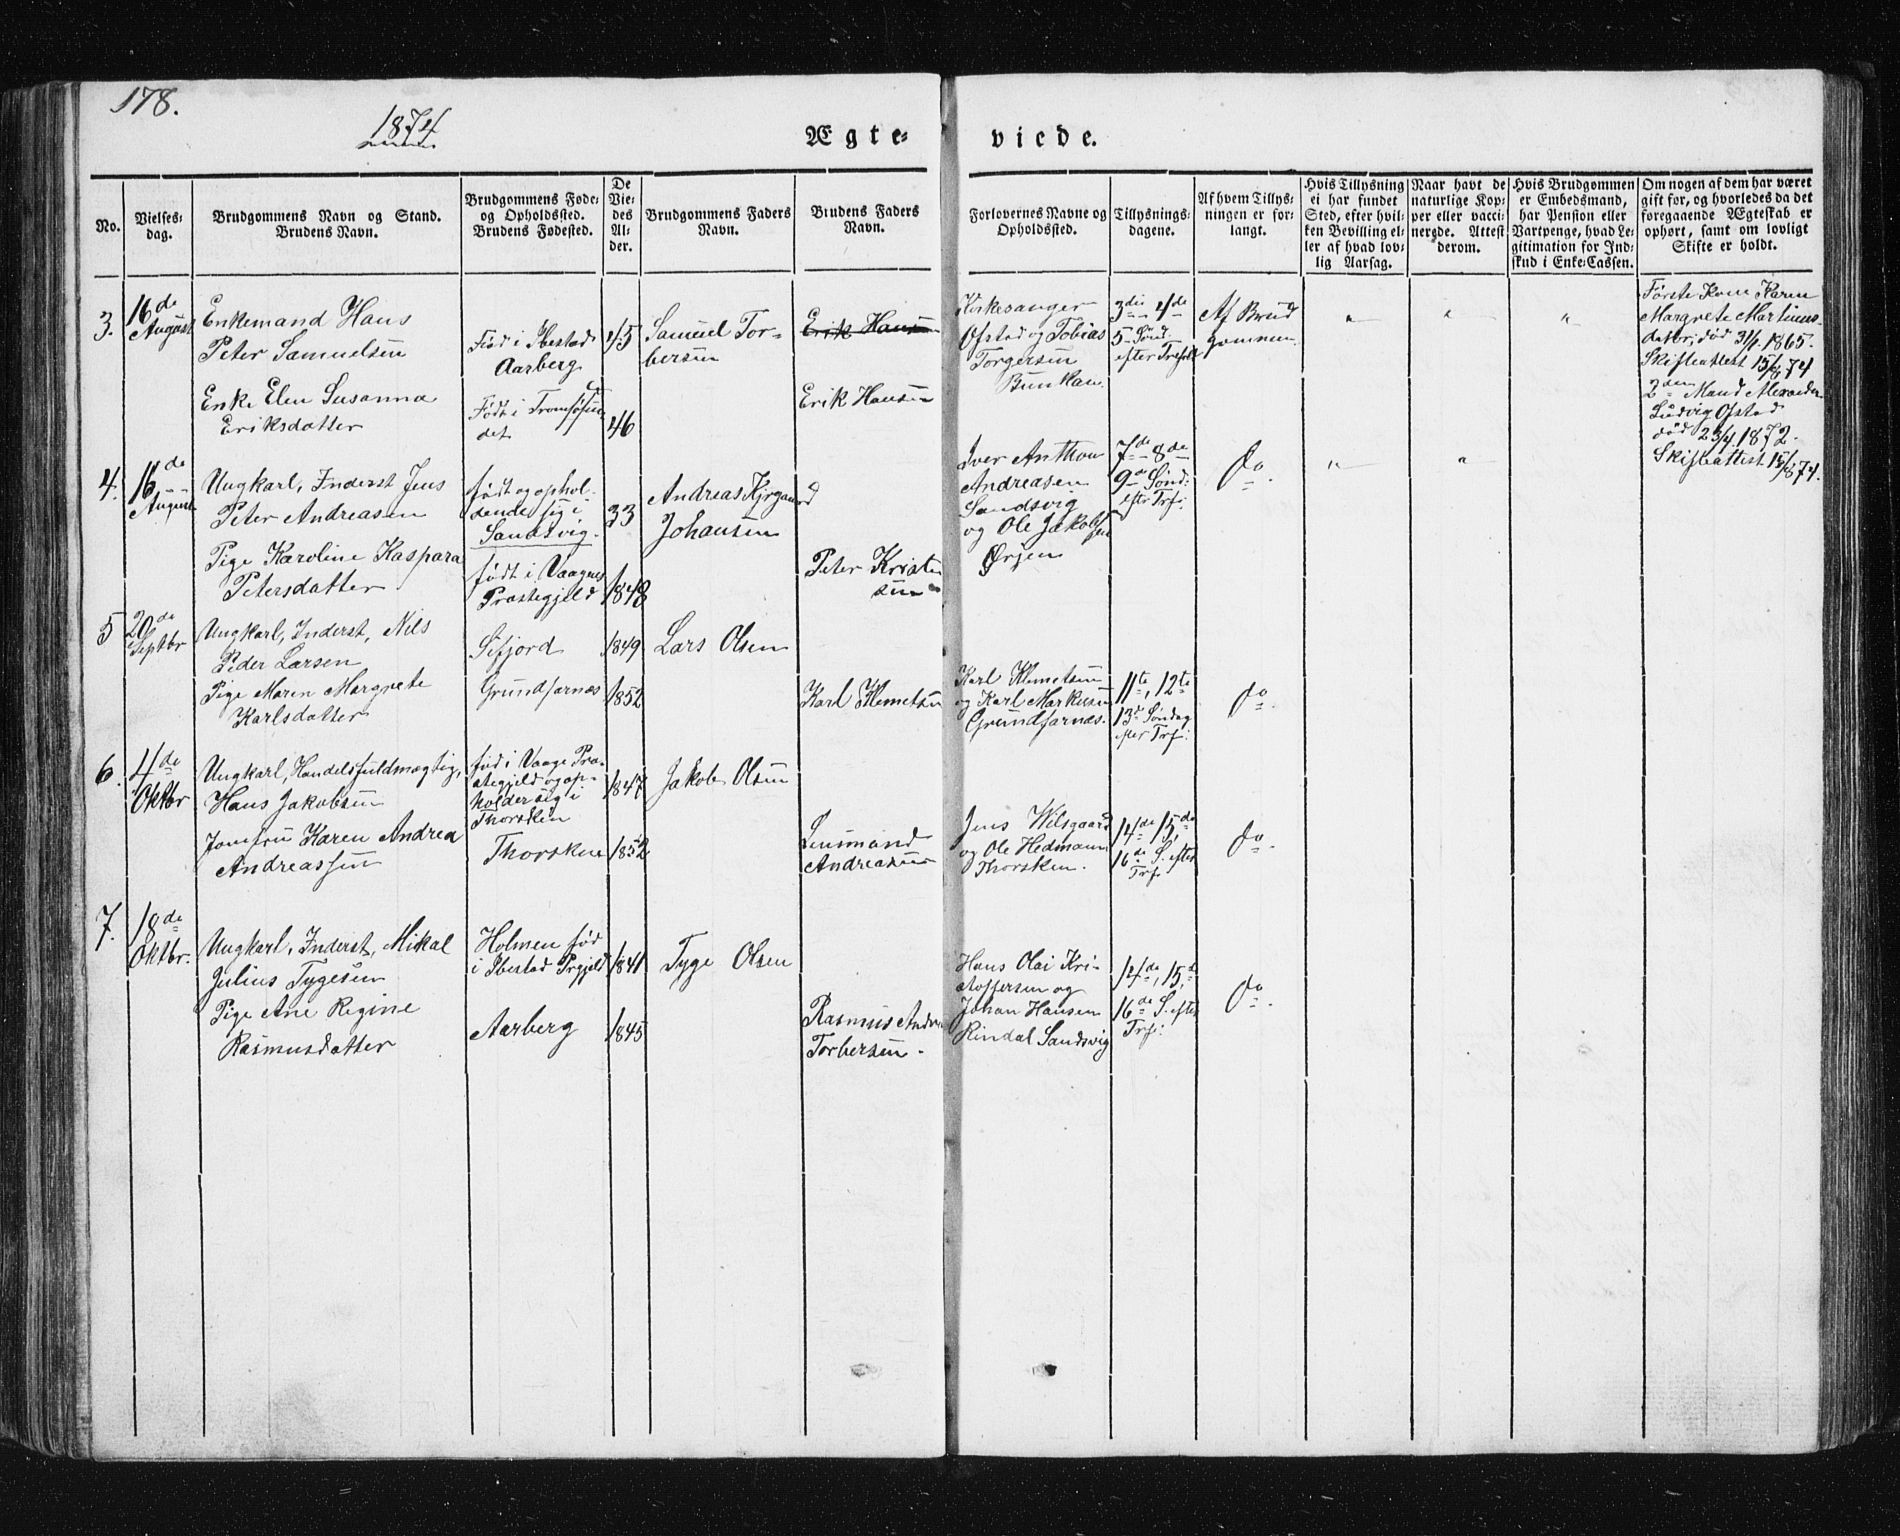 178.
1874
Ægte-
viede.
No.
Vielses-
dag.
Brudgommens Navn og Stand.
Brudens Navn.
Brudgommens Føde-
og Opholdssted.
Brudens Fødested.
De
Vie-
des
Al-
der.
Brudgommens Faders
Navn.
Brudens Faders
Navn.
Forlovernes Navne og
Opholdssted.
Tillysnings-
dagene.
Af hvem Tillys-
ningen er for-
langt.
Hvis Tillysning
ei har fundet
Sted, efter hvil-
ken Bevilling el-
ler af hvad lov-
lig Aarsag.
Naar havt de
naturlige Kop-
per eller vacci-
nerede. Attest
derom.
Hvis Brudgommen
er Embedsmand,
har Pension eller
Vartpenge, hvad Le-
gitimation for Ind-
skud i Enke-Cassen.
Om nogen af dem har været
gift før, og hvorledes da det
foregaaende Ægteskab er
ophørt, samt om lovligt
Skifte er holdt.
3.
16de
August
Enkemand Hans
Peter Samuelsen
Enke Elen Susanna
Eriksdatter
Fød i Ibestad
Aarberg
Født i Tromsøsun
det
45
46
Samuel Tor-
bersen
Erik Hansen
Erik Hansen
Kirkesanger
Ofstad og Tobias
Torgersen
Bunkan.
3die 4de
5 Sønd
efter Trefold
Af Brud
gommen
"
"
"
Første Kone Karen
Margrete Martinus-
datter, død 3/1 1865.
Skifteattest 15/8 74
2den Mand Alexander
Ludvig Ofstad
død 23/4 1872.
Skifteattest 15/8 74.
4.
16de
August
Ungkarl, Inderst Jens
Peter Andreasen
Pige Karoline Kaspara
Petersdatter
født og ophol-
dende sig i
Sandsvig.
født i Vaagnes
Præstegjeld
33
1848
Andreas Kjrgaard
Johansen
Peter Kristen
sen
Iver Anthon
Andreasen
Sandsvig
og Ole Jakobsen
Ørjen
7de 8de
9de Sønd:
efter Trf:
do
"
"
5
20de
Septbr
Ungkarl, Inderst, Nils
Peder Larsen
Pige Maren Margrete
Karlsdatter
Sifjord
Grundfarnæs
1849
1852
Lars Olsen
Karl Klemetsen
Karl Klemetsen
og Karl Markusen
Grundfarnæs.
11te, 12te
13de Søndag
efter Trf:
do
6.
4de
Oktbr
Ungkarl, Handelsfuldmægtig,
Hans Jakobsen
Jomfru Karen Andrea
Andreassen
fød i Vaage Præ-
stegjeld og op-
holder sig i
Thorsken
Thorsken
1847
1852
Jakob Olsen
Lensmand
Andreasen
Jens Wilsgaard
og Ole Hedmann
Thorsken.
14de 15de
16de S. efter
Trf.
do
7.
18de
Oktbr.
Ungkarl, Inderst, Mikal
Julius Tygesen
Pige Ane Regine
Rasmusdatter
Holmen fød
i Ibestad Prgjeld
Aarberg
1841
1845
Tyge Olsen
Rasmus Andreas
Torbersen.
Hans Olai Kri-
stoffersen og
Johan Hansen
Rindal Sandsvig
14de, 15de
16de S. efter
Trf:
do